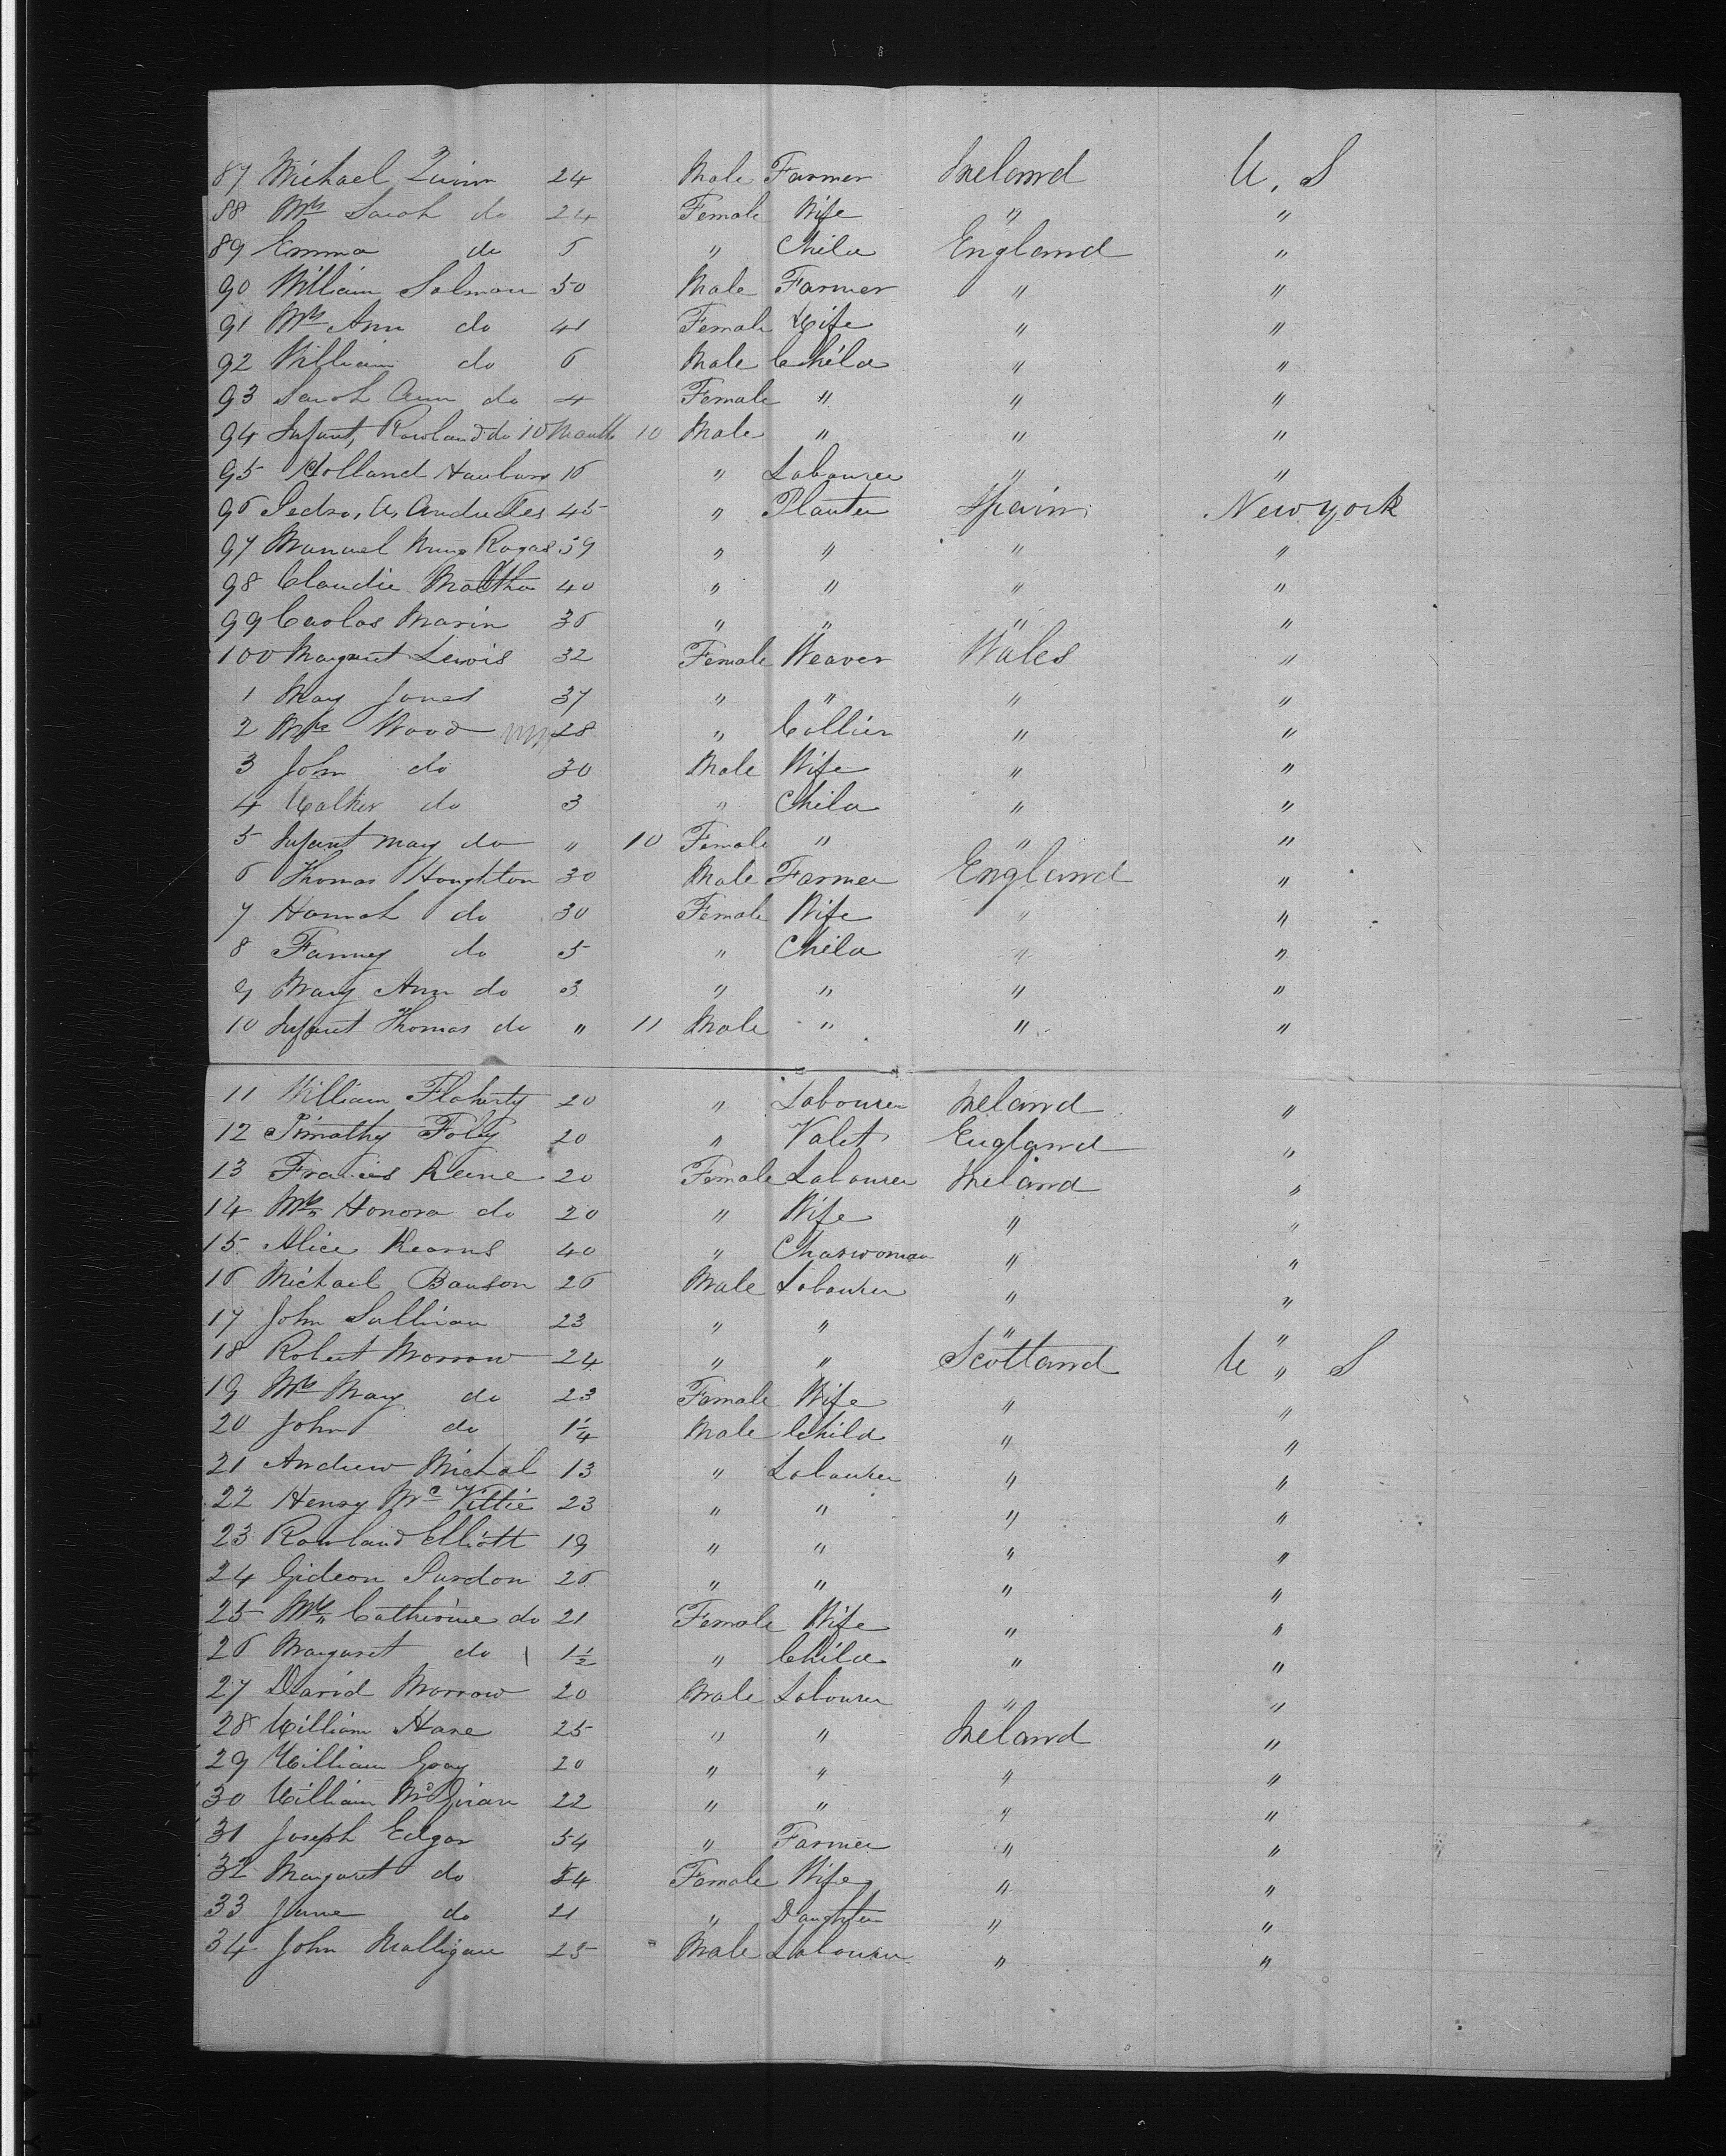 87 Michael Quinn 24 Male Farmer Ireland U, S
88 Mrs Sarah do 24 Female Wife " "
89 Emma do 6 " Child England "
90 William Salmon 50 Male Farmer " "
91 Mrs Ann do 41 Female Wife " "
92 William do 6 Male Child " "
93 Sarah Ann do 4 Female " " "
94 Infant, Rowland do 10 Month 10 Male " " "
95 Holland 16 " Labourer " "
96 Pedro, A, 45 " Planter Spain New york
97 Manuel Rogas 39 " " " "
98 Claudie 40 " " " "
99 Carlos Marin 36 " " " "
100 Margaret Lewis 32 Female Weaver Wales "
1 Mary Jones 37 " " " "
2 Mrs Wood 28 " Collier " "
3 John do 30 Male Wife " "
4 Walker do 3 " Child " "
5 Infant Mary do " 10 Female " " "
6 Thomas Houghton 30 Male Farmer England "
7 Hannah do 30 Female Wife " "
8 Fanney do 5 " Child " "
9 Mary Ann do 3 " " " "
10 Infant Thomas do " 11 Male " " "
11 William Flaherty 20 " Labourer Ireland "
12 Timothy Foley 20 " Valet England "
13 Francis Keene 20 Female Labourer Ireland "
14 Mrs Honora do 20 " Wife " "
15 Alice Kearns 40 " Charwoman " "
16 Michael 26 Male Labourer " "
17 John Sullivan 23 " " " "
18 Robert Morrow 24 " " Scotland U " S
19 Mrs Mary do 23 Female Wife " "
20 John do 1 1/4 Male Child " "
21 Andrew Michal 13 " Labourer " "
22 Henry Mc Vittie 23 " " " "
23 Rowland Elliott 19 " " " "
24 Gideon Purdon 26 " " " "
25 Mrs Catherine do 21 Female Wife " "
26 Margaret do 1 1/2 " Child " "
27 David Morrow 20 Male Labourer " "
28 William Hare 25 " " Ireland "
29 William Gray 20 " " " "
30 William McGivan 22 " " " "
31 Joseph Edgar 54 " Farmer " "
32 Margaret do 54 Female Wife " "
33 Jane do 21 " Daughter " "
34 John Malligan 25 Male Labourer " "